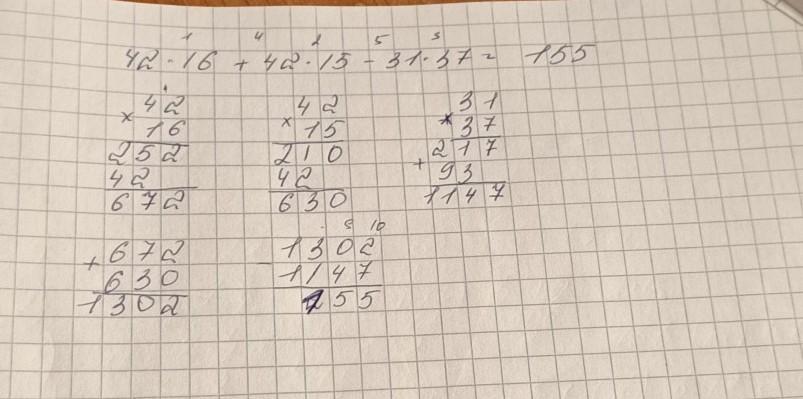 1 4 2 5 3
42·16 + 42·15 - 31·37 = 155
42 42 31
×16 ×15 ×37
252 210 217
42 42 +93
672 630 1147
9 10
+672 -1302
630 1147
1302 155